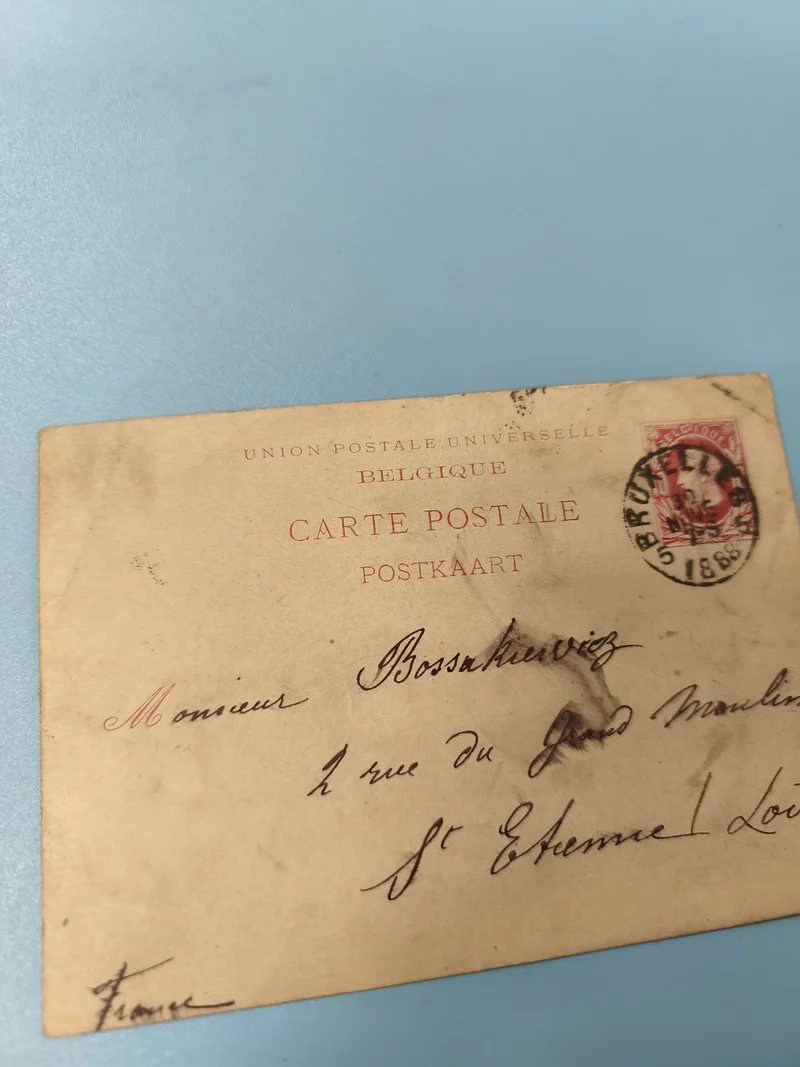 UNION POSTALE UNIVERSELLE
BELGIQUE
CARTE POSTALE
POSTKAART
BELGIQUE
BRUXELLES 5
1888
Monsieur Bossakiewicz
2 rue du Grand Moulin
St Etienne Loi
France